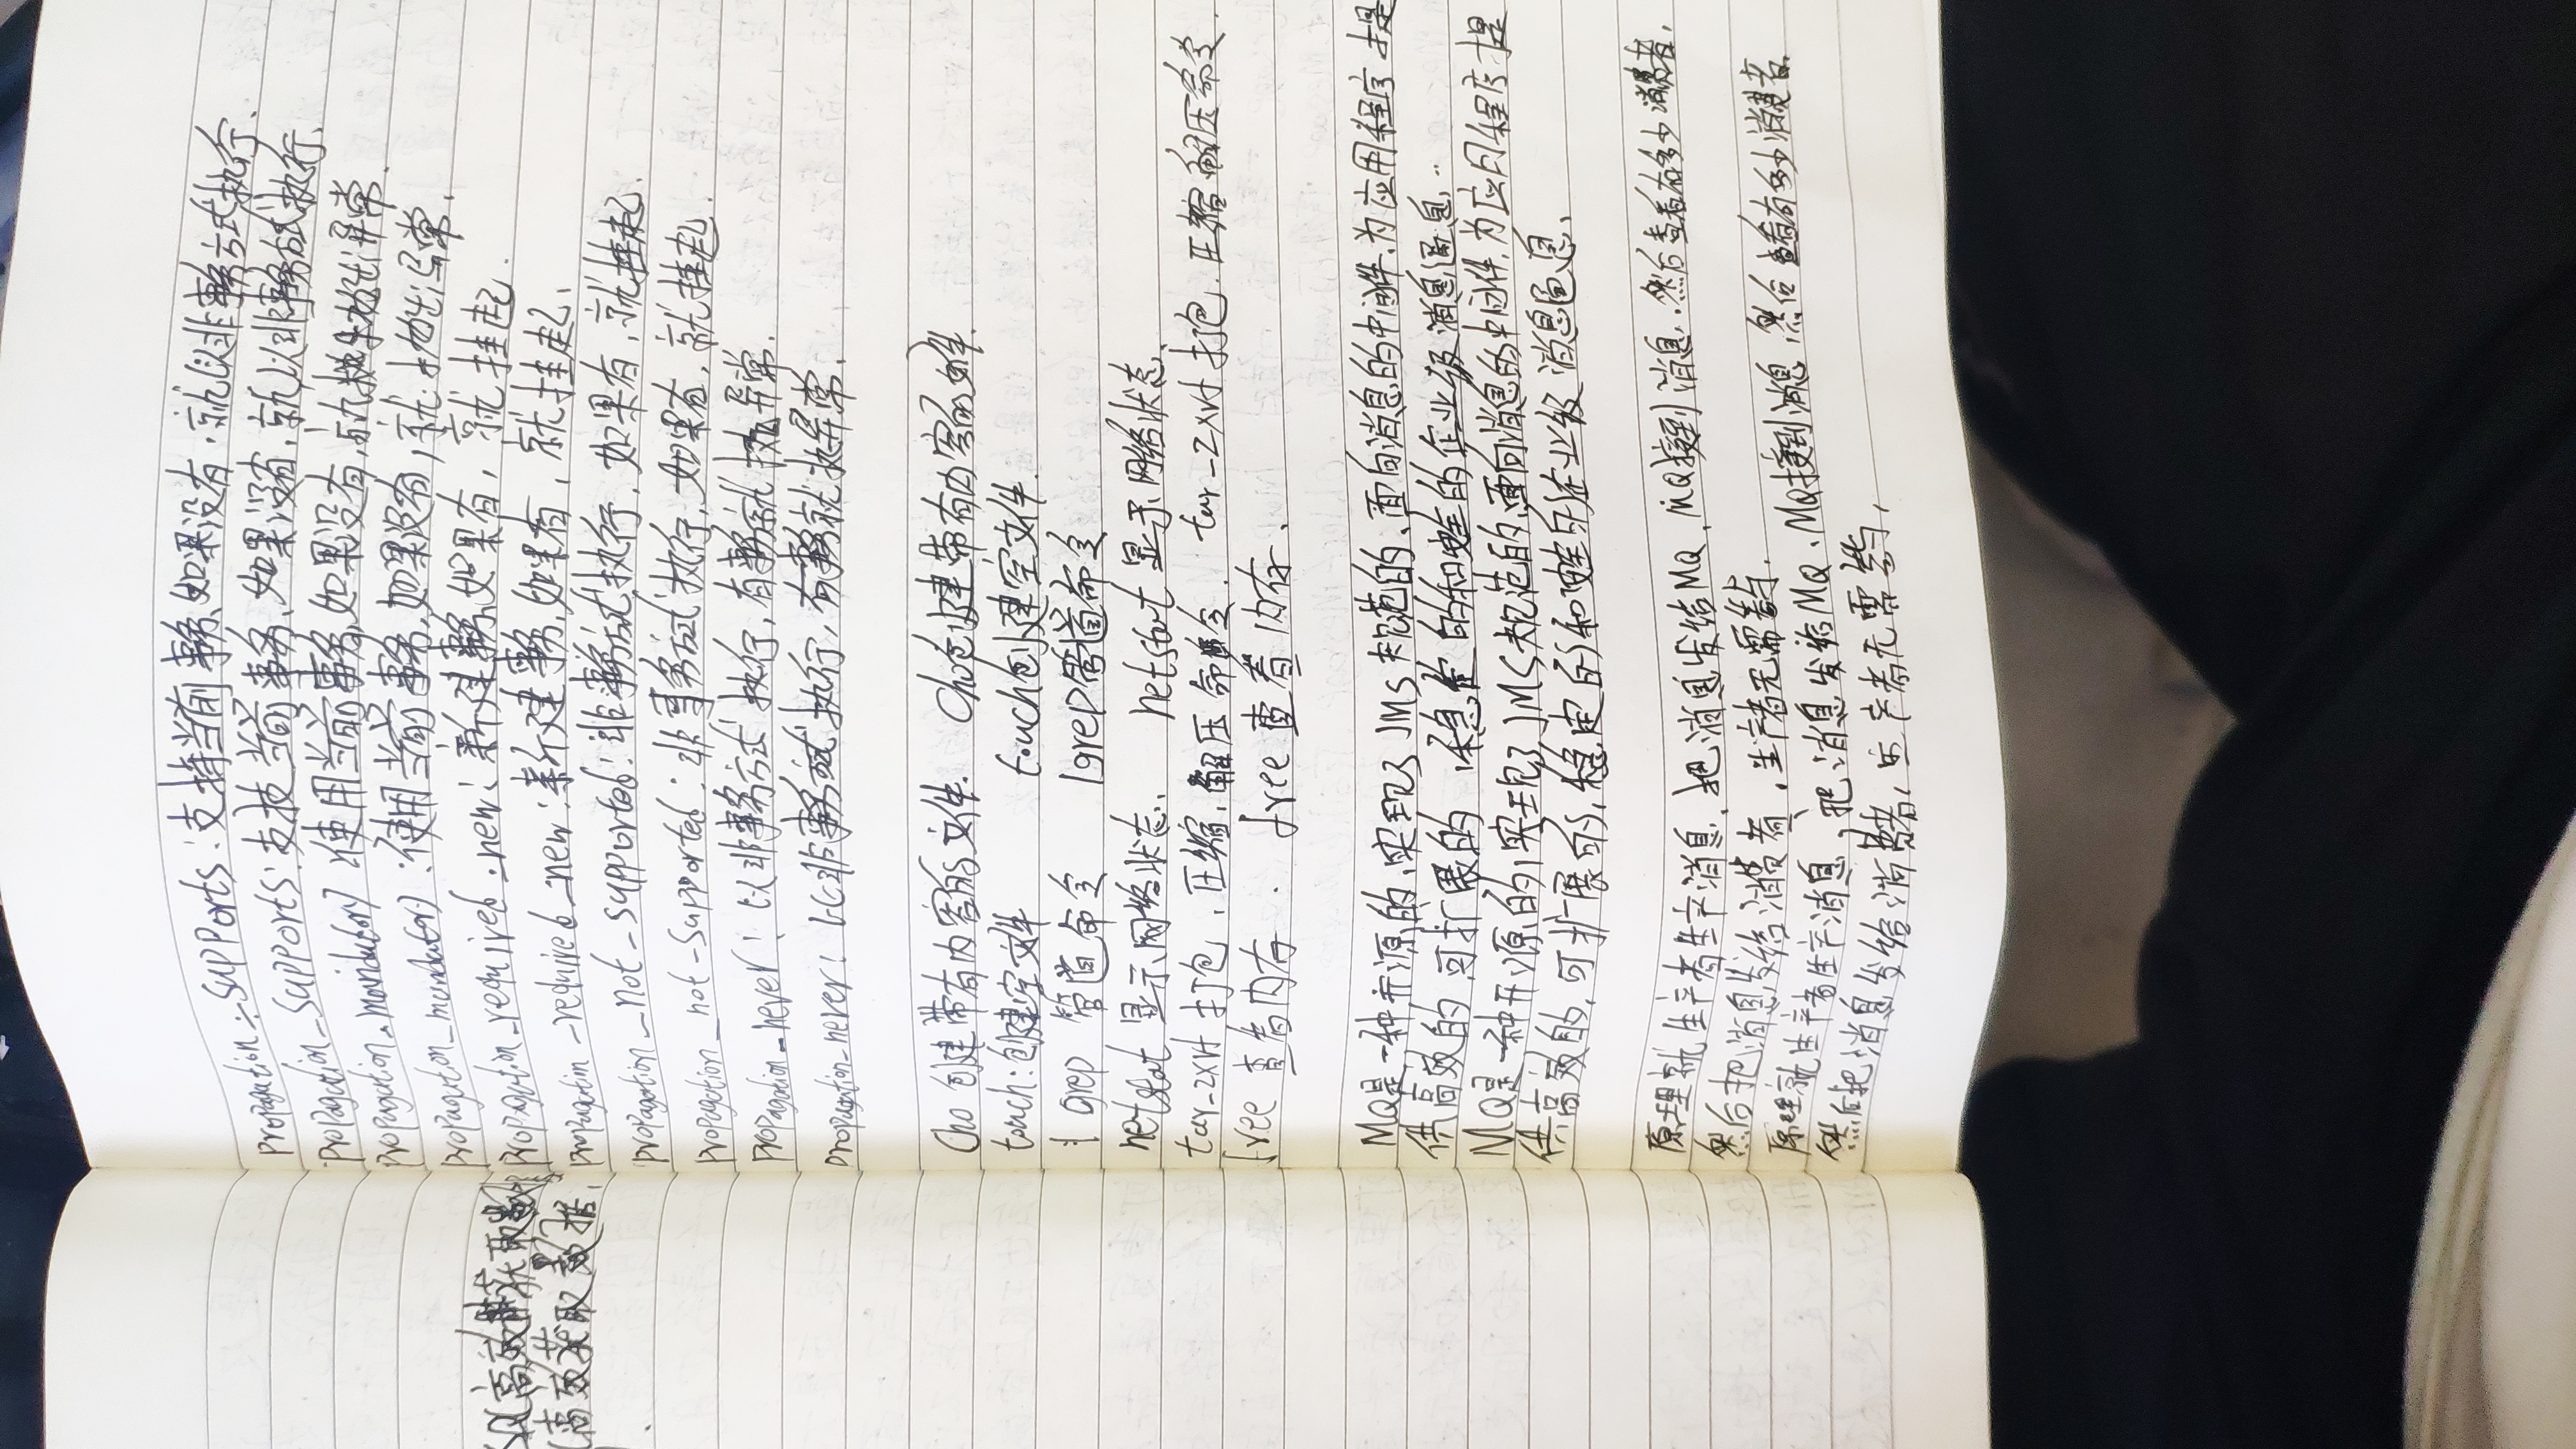 Propagation_supports:支持当前事务,如果没有,就以非事务方式执行.
Propagation_supports:支技当前事务,如果没有,就以非事务方式执行.
Propagation_mandatory:使用当前事务,如果没有,就抛出异常.
Propagation_mandatory:使用当前事务,如果没有,就抛出异常.
Propagation_required_new:新建事务,如果有,就挂起.
Propagation_required_new:新建事务,如果有,就挂起.
Propagation_not_supported:非事务方式执行,如果有,就挂起.
Propagation_not_supported:非事务方式执行,如果有,就挂起.
Propagation_never:以非事务方式执行,有事务就抛异常.
Propagation_never:以非事务方式执行,有事务就抛异常.
高效获取数据
高效获取数据.
Cho 创建带有内容的文件. Cho创建带有内容的文件.
touch:创建空文件 touch创建空文件.
| grep 管道命令 |grep管道命令
netstat 显示网络状态. netstat 显示网络状态.
tar_zxvf 打包,压缩,解压命令. tar_zxvf 打包.压缩 解压命令.
free 查看内存. free 查看内存.
MQ是一种开源的,实现了JMS规范的,面向消息的中间件,为应用程序提
供高效的 可扩展的,稳定的和安全的企业级消息通息.
MQ是一种开源的,实现了JMS规范的,面向消息的中间件,为应用程序提
供高效的,可扩展的,稳定的和安全的企业级消息通息.
原理就生产者生产消息,把消息发给MQ,MQ接到消息.然后查看有多少消费者,
然后把消息发给消费者,生产者无需参与.
原理就生产者生产消息,把消息发给MQ、MQ接到消息 然后查看有多少消费者.
然后把消息发给消费者,生产者无需参与,